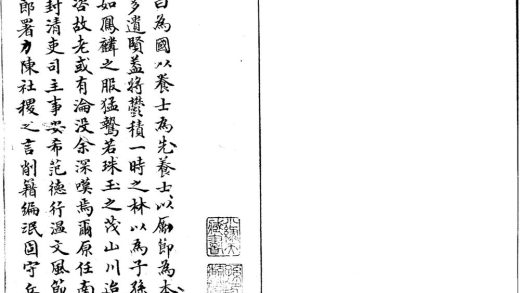 曰為國以養士為先養士以厲節為本
多遺賢蓋將鬱積一時之林以為子孫
如鳳麟之服猛鷙若珠玉之茂山川迨
咨故老或有淪没余深嘆焉爾原任南
封清吏司主事安希范德行温文風節
郎署力陳社稷之言削籍編氓固守丘